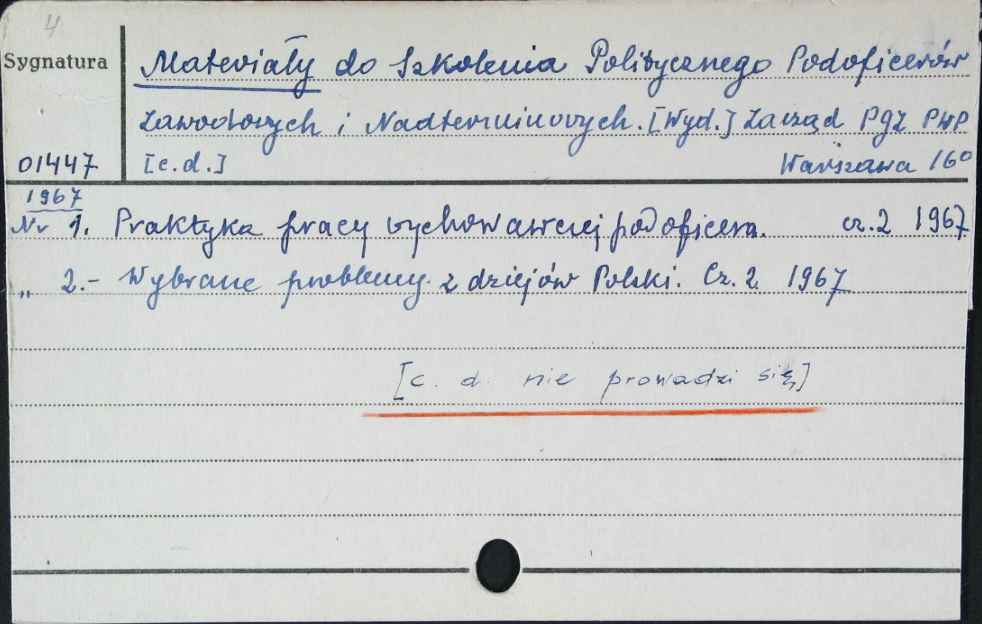 4
Sygnatura
Materiały do Szkolenia Politycznego Podoficerów
Zawodowych i Nadterminowych. [Wyd.] Zarząd PGZ PWP
01447 [c.d.] Warszawa 16°
1967
Nr 1. Praktyka pracy wychowawczej podoficera. cz.2 1967
„ 2.- Wybrane problemy z dziejów Polski. Cz. 2. 1967
[c. d. nie prowadzi się]